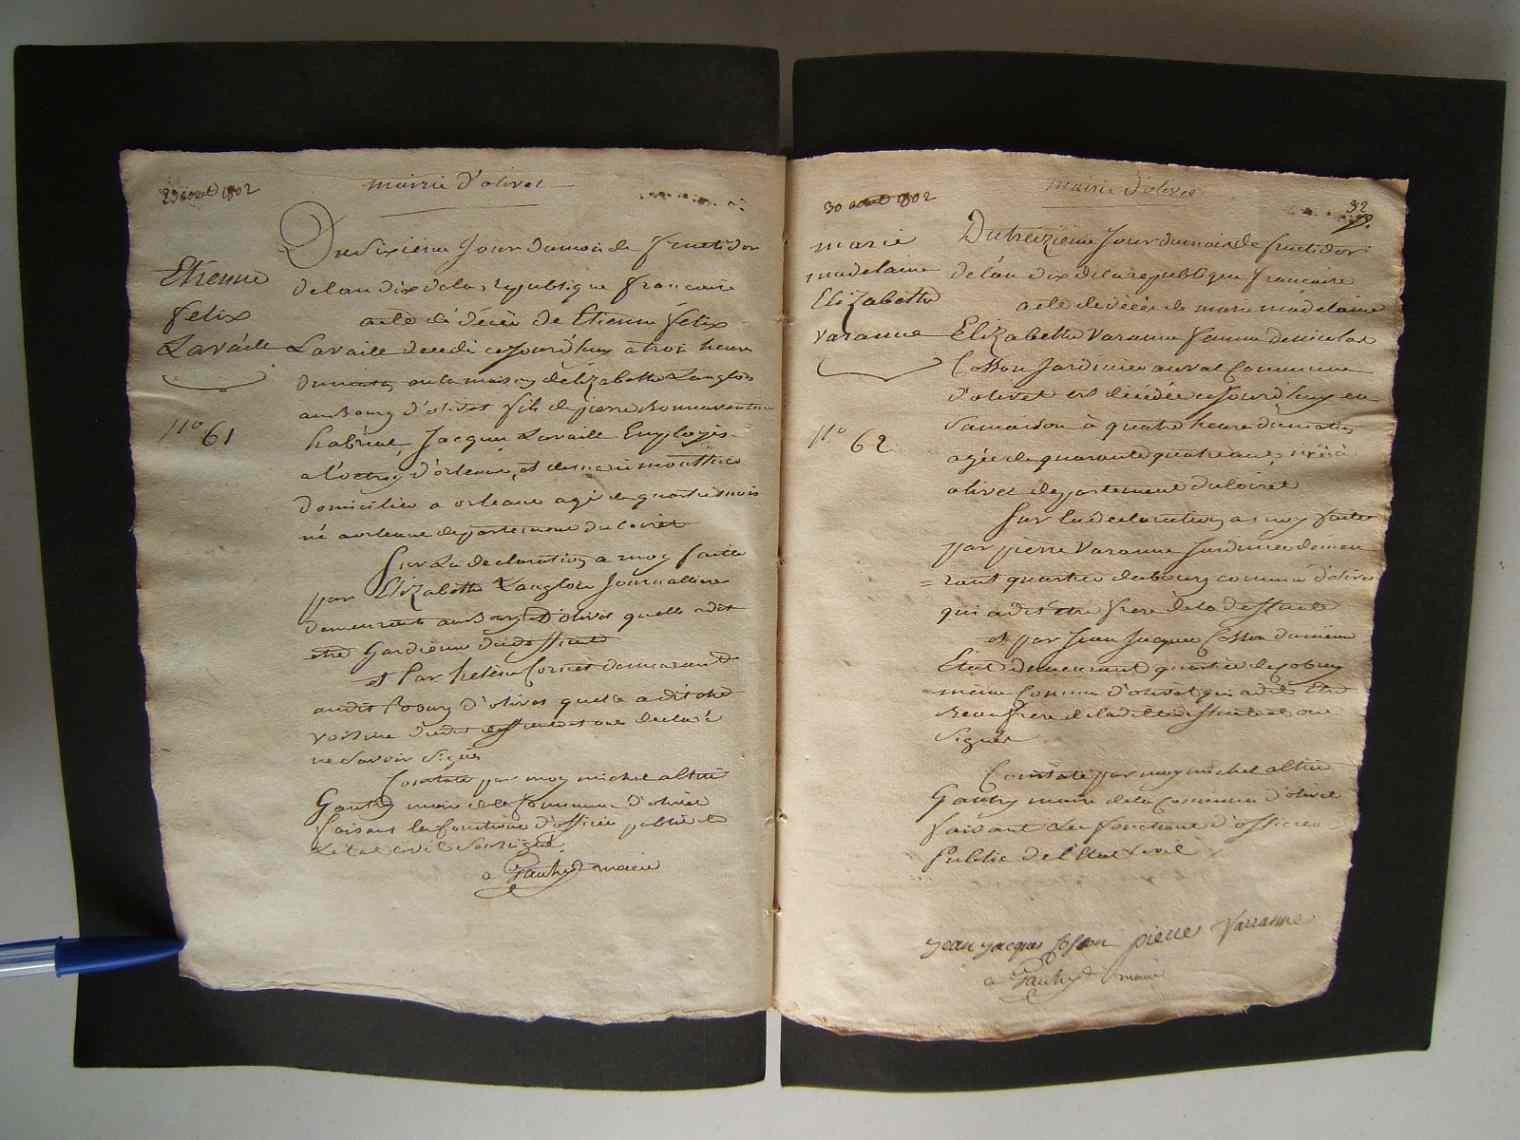 mairie d'olivet
Du sixieme Jour du mois de fructidor
Etienne
de lan dix de la republique francaise
felix
acte de décès de Etienne félix
Lavaille
Lavaille decedé cejourdhuy à trois heure
du matin en la maison delizabette Langlois
au Bourg d'olivet fils de pierre Bonnaventure
n° 61
Jacques Lavaille Employé
a l'octroy d'orleans, et de marie
domicilié a orleans agé de quatre mois
né a orleans departement du loiret
Sur la declaration a moy faitte
par Elizabette Langlois Journalliere
demeurante au Bourg D'olivet quelle a dit
etre Gardienne du deffunt
et Par helene Cornet demeurante
audit Bourg d'olivet quelle a dit etre
voisine dudit deffunt et ont declaré
ne Savoir Signer
Constaté par moy michel
Gautry maire de la Commune d'olivet
faisant les fonctions d'officier public de
L'état civil Soussigné
Gautry maire
30 aout 1802
mairie d'olivet
32
Du treizieme Jour du mois de fructidor
marie
madelaine
de l'an dix de la republique francaise
Elizabette
acte de décès de marie madelaine
varanne
Elizabette Varanne femme de nicolas
Cosson Jardinier au val Commune
d'olivet est décédée cejourd'huy en
Sa maison à quatre heure du matin
n° 62
agée de quarante quatre ans, née à
olivet departement du loiret
Sur la declaration a moy faitte
par pierre Varanne Jardinier demeu
= rant quartier du bourg commune d'olivet
qui a dit etre frere de la deffunte
et par Jean Jacque Cosson du meme
Etat demeurant quartier
meme Commune d'olivet qui a dit etre
Beau frere de la ditte deffunte et ont
Signés
Constaté par moy michel
Gautry maire de la Commune d'olivet
faisant les fonctions d'officier
Public de l'Etat Civil
jean jacques Cosson pierre Varanne
Gautry maire